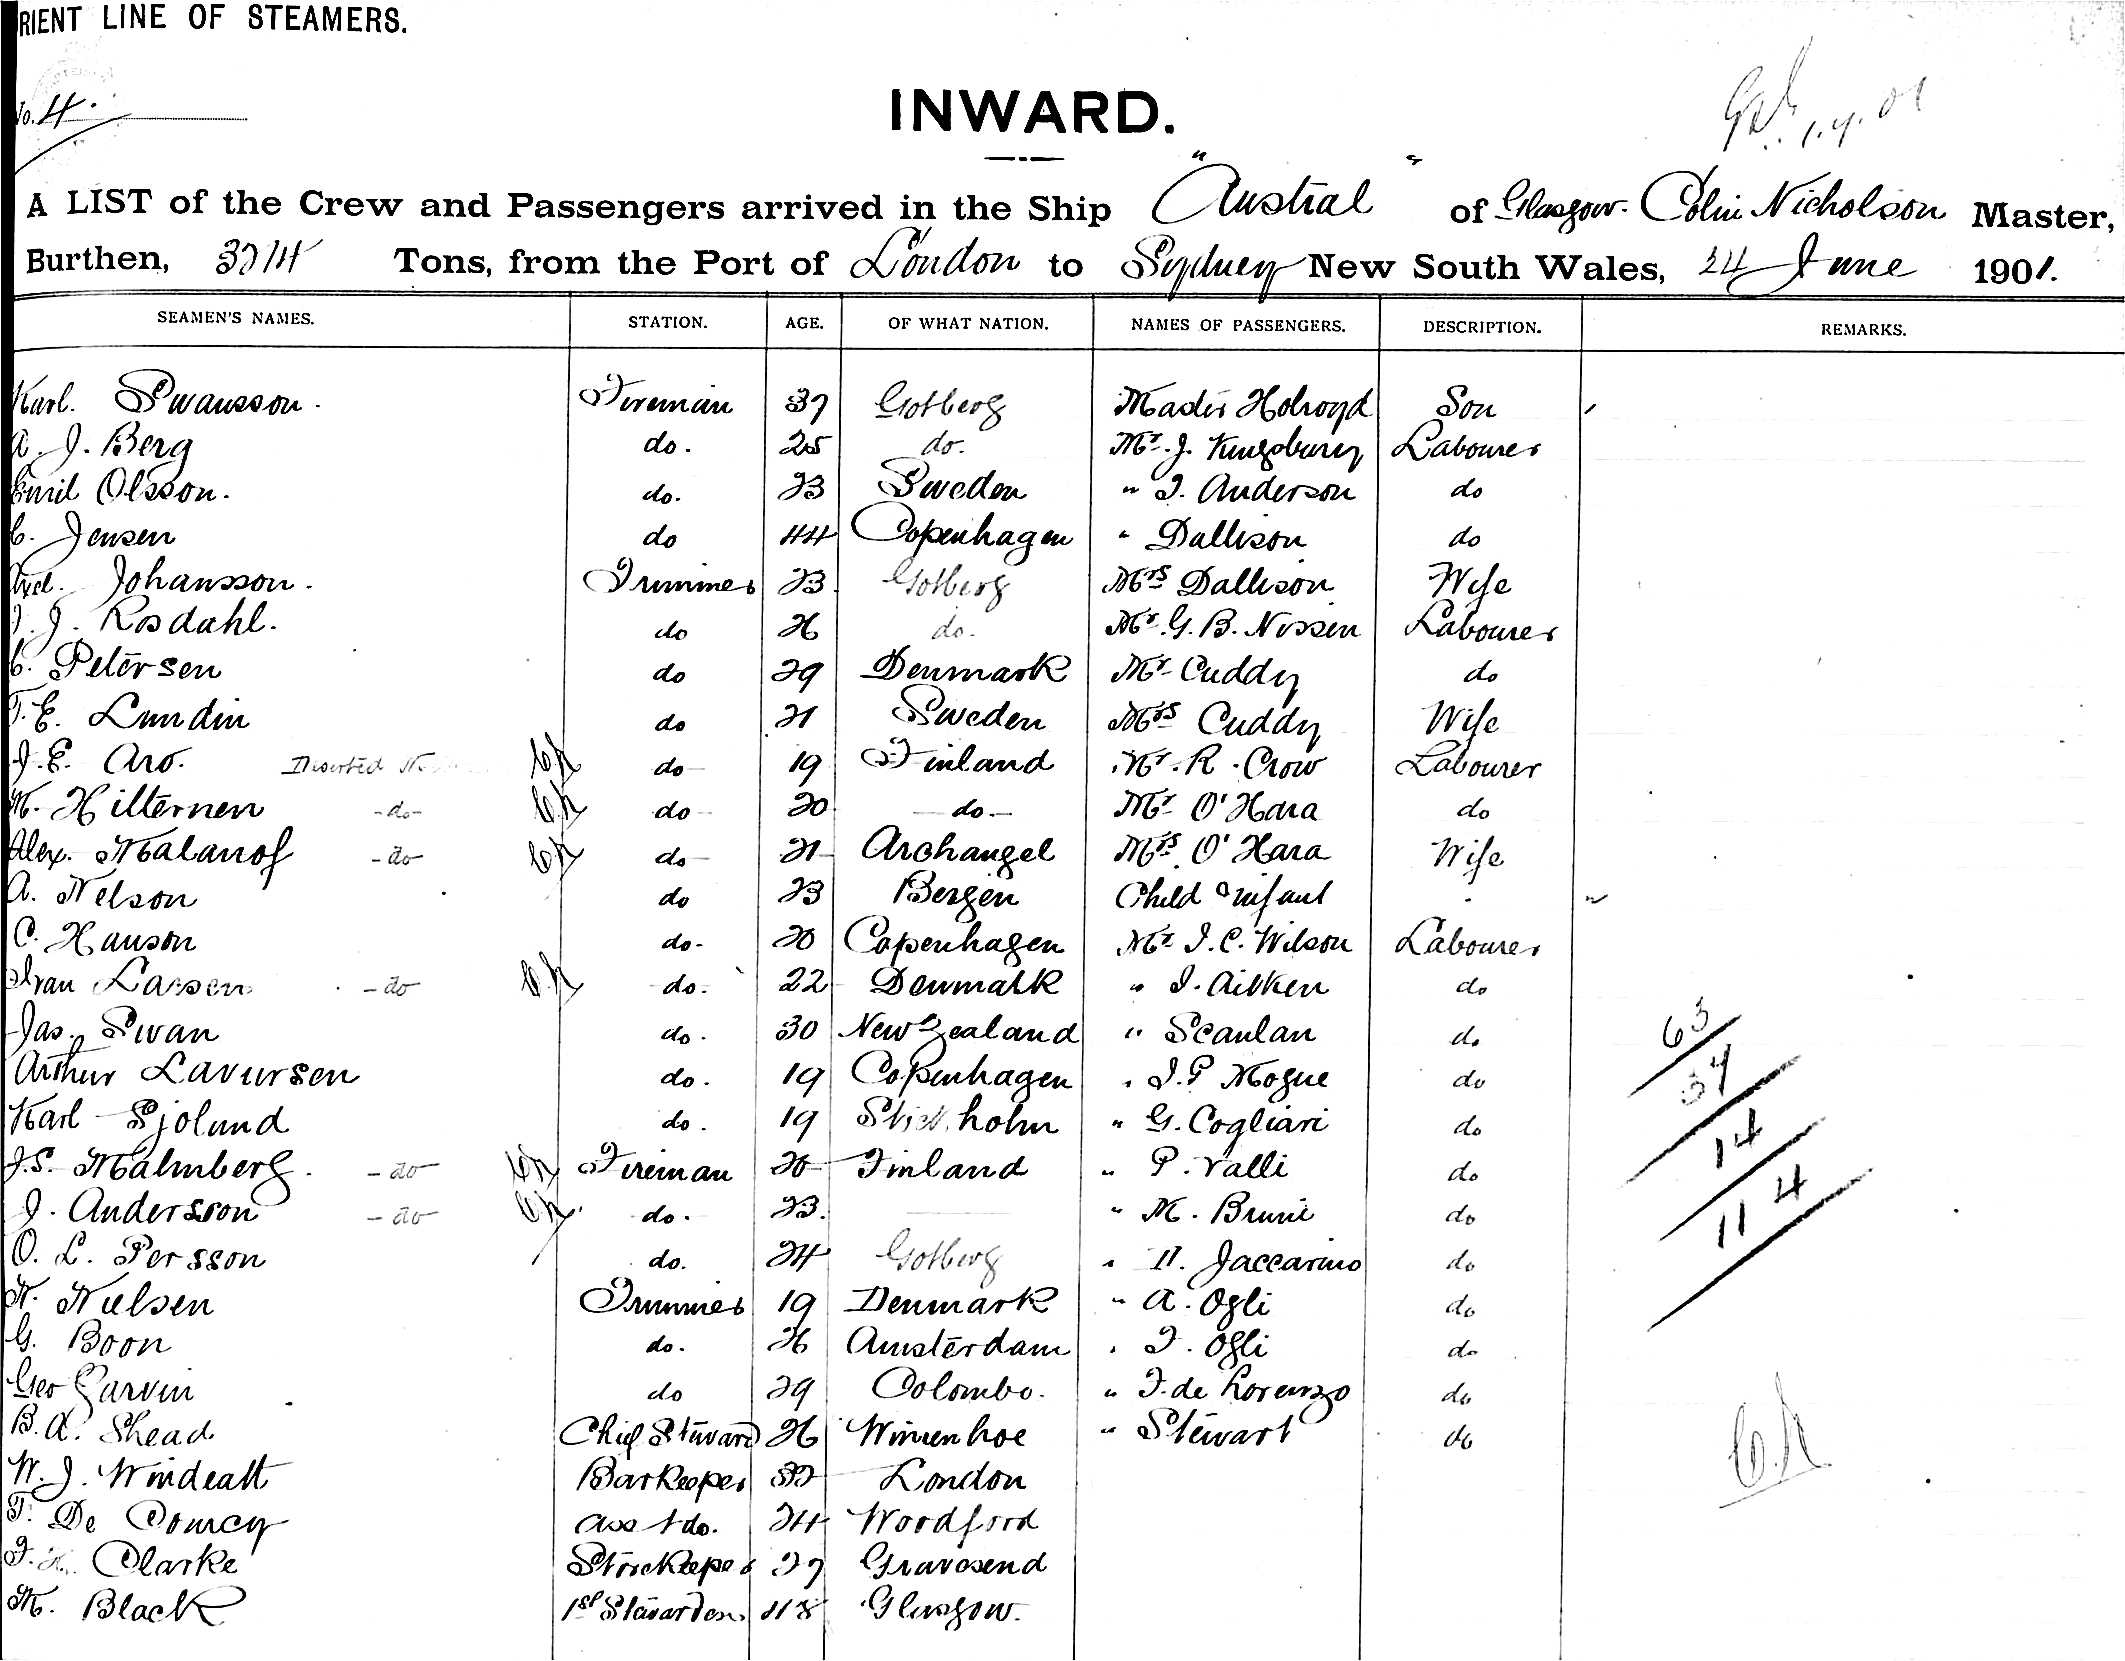 RIENT LINE OF STEAMERS.
No. 4.
INWARD.
1.7.01
A LIST of the Crew and Passengers arrived in the Ship "Austral" of Glasgow. Colin Nicholson Master,
Burthen, 3214 Tons, from the Port of London to Sydney New South Wales, 24 June 1901.
SEAMEN'S NAMES. STATION. AGE. OF WHAT NATION. NAMES OF PASSENGERS. DESCRIPTION. REMARKS.
Karl. Swansson. Fireman 37 Gotberg Master Holroyd Son
A. J. Berg do. 25 do. Mr. J. Kingsbury Labourer
Emil Olsson. do. 23 Sweden " J. Anderson do
C. Jensen do 44 Copenhagen " Dallison do
Axel. Johansson. Trimmer 23 Gotberg Mrs Dallison Wife
J. Rosdahl. do 26 do. Mr. G. B. Nissen Labourer
C. Petersen do 29 Denmark Mr Cuddy do
F. E. Lundin do 21 Sweden Mrs Cuddy Wife
J. E. Aro. Deserted do 19 Finland Mr. R. Crow Labourer
K. Hilternen -do- do 20 -do- Mr O'Hara do
Alex. Malanof -do- do 21 Archangel Mrs O'Hara Wife
A. Nelson do 23 Bergen Child & infant
C. Hanson do- 20 Copenhagen Mr J. C. Wilson Labourer
Ivan Larsen -do do. 22 Denmark " J. Aitken do
Jas. Swan do. 30 New Zealand " Scanlan do
Arthur Lavursen do. 19 Copenhagen " J. P Mogue do
Karl Sjolund do. 19 Stockholm " G. Cogliari do
J. S. Malmberg. -do- Fireman 20 Finland " P. Valli do
J. Andersson -do- do. 23. " M. Bruni do
O. L. Persson do. 24 Gotberg " Jaccarino do
N. Nielsen Trimmer 19 Denmark " A. Ogli do
G. Boon do. 26 Amsterdam " F. Ogli do
Geo Garvin do 29 Colombo. " F. de Lorenzo do
B. A. Shead Chief Steward 26 Wivenhoe " Stewart do
W. J. Windeatt Barkeeper 32 London
F. De Courcy asst do. 24 Woodford
F. H. Clarke Storekeeper 27 Gravesend
M. Black 1st Stewardess 48 Glasgow.
63
37
14
114